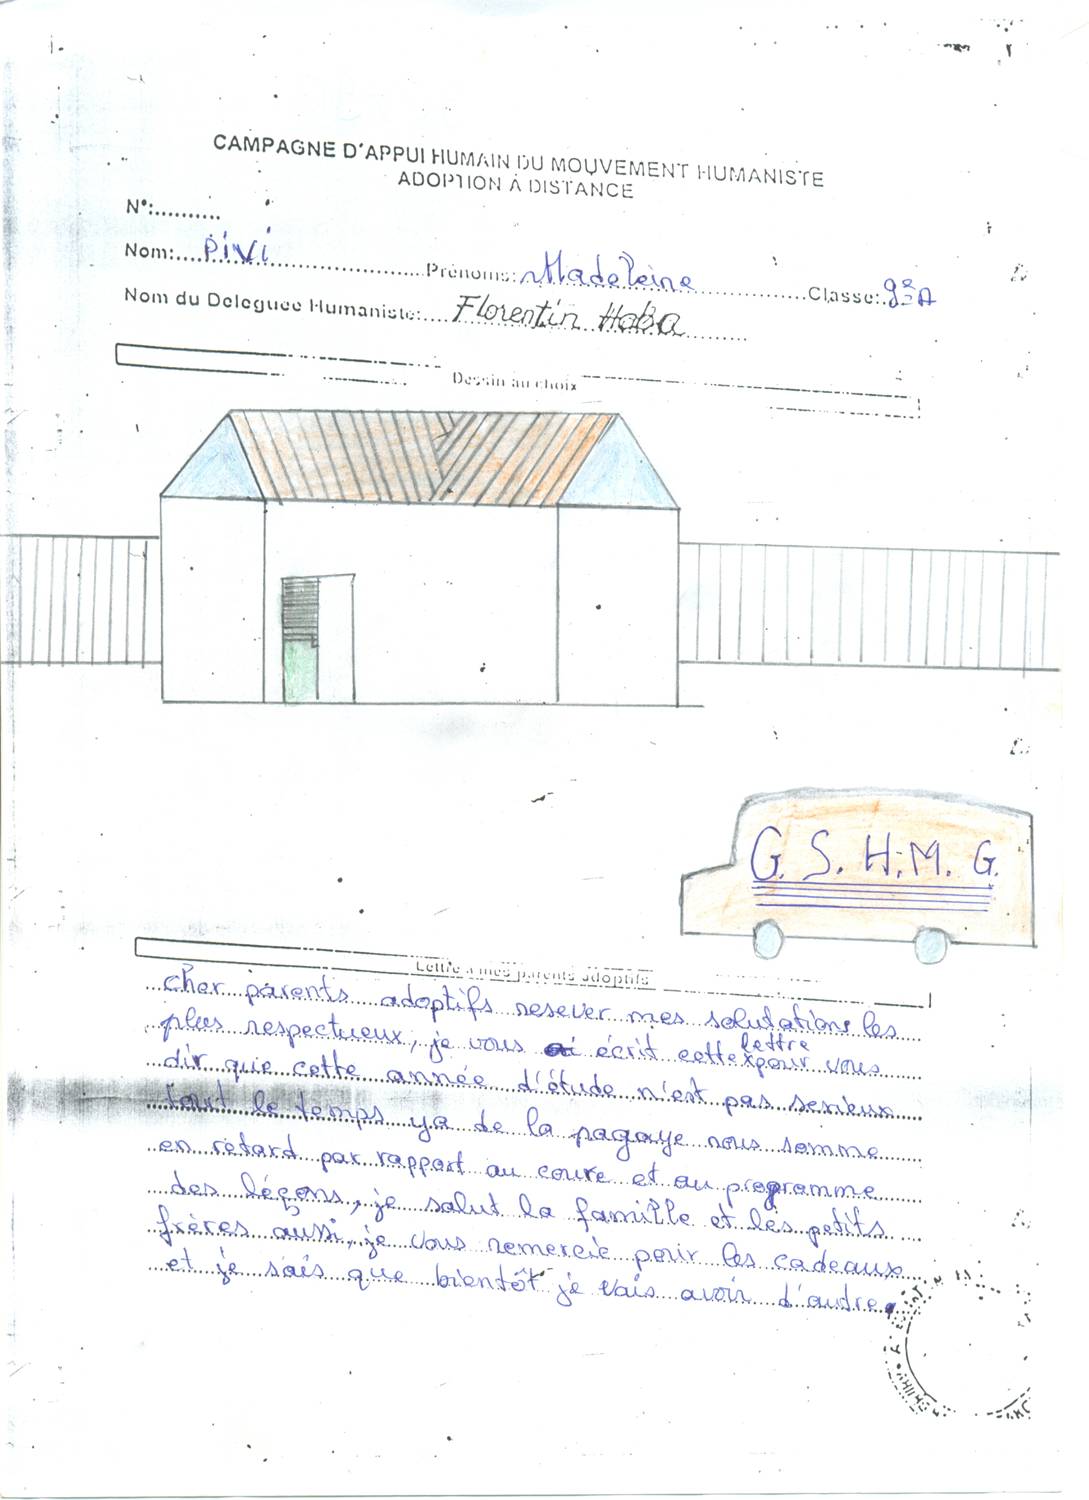 CAMPAGNE D'APPUI HUMAIN DU MOUVEMENT HUMANISTE
ADOPTION À DISTANCE
N°:..........
Nom:....Pivi........................Prénoms:Madeleine................Classe:.9e A
Nom du Deleguée Humaniste:....Florentin Haba.........
Dessin au choix
G. S. H. M. G.
Lettre a mes parents adoptifs
cher parents adoptifs resever mes salutations les
plus respectueux, je vous écrit cette lettre pour vous
dir que cette année d'étude n'est pas serieux
tout le temps ya de la pagaye nous somme
en retard par rapport au coure et au programme
des léçons, je salut la famille et les petits
frères aussi, je vous remercie pour les cadeaux
et je sais que bientôt je vais avoir d'autre